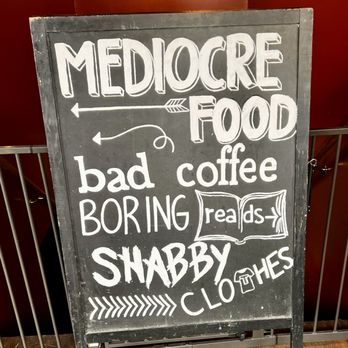 MEDIOCRE
FOOD
bad coffee
BORING reads
SHABBY
CLOTHES